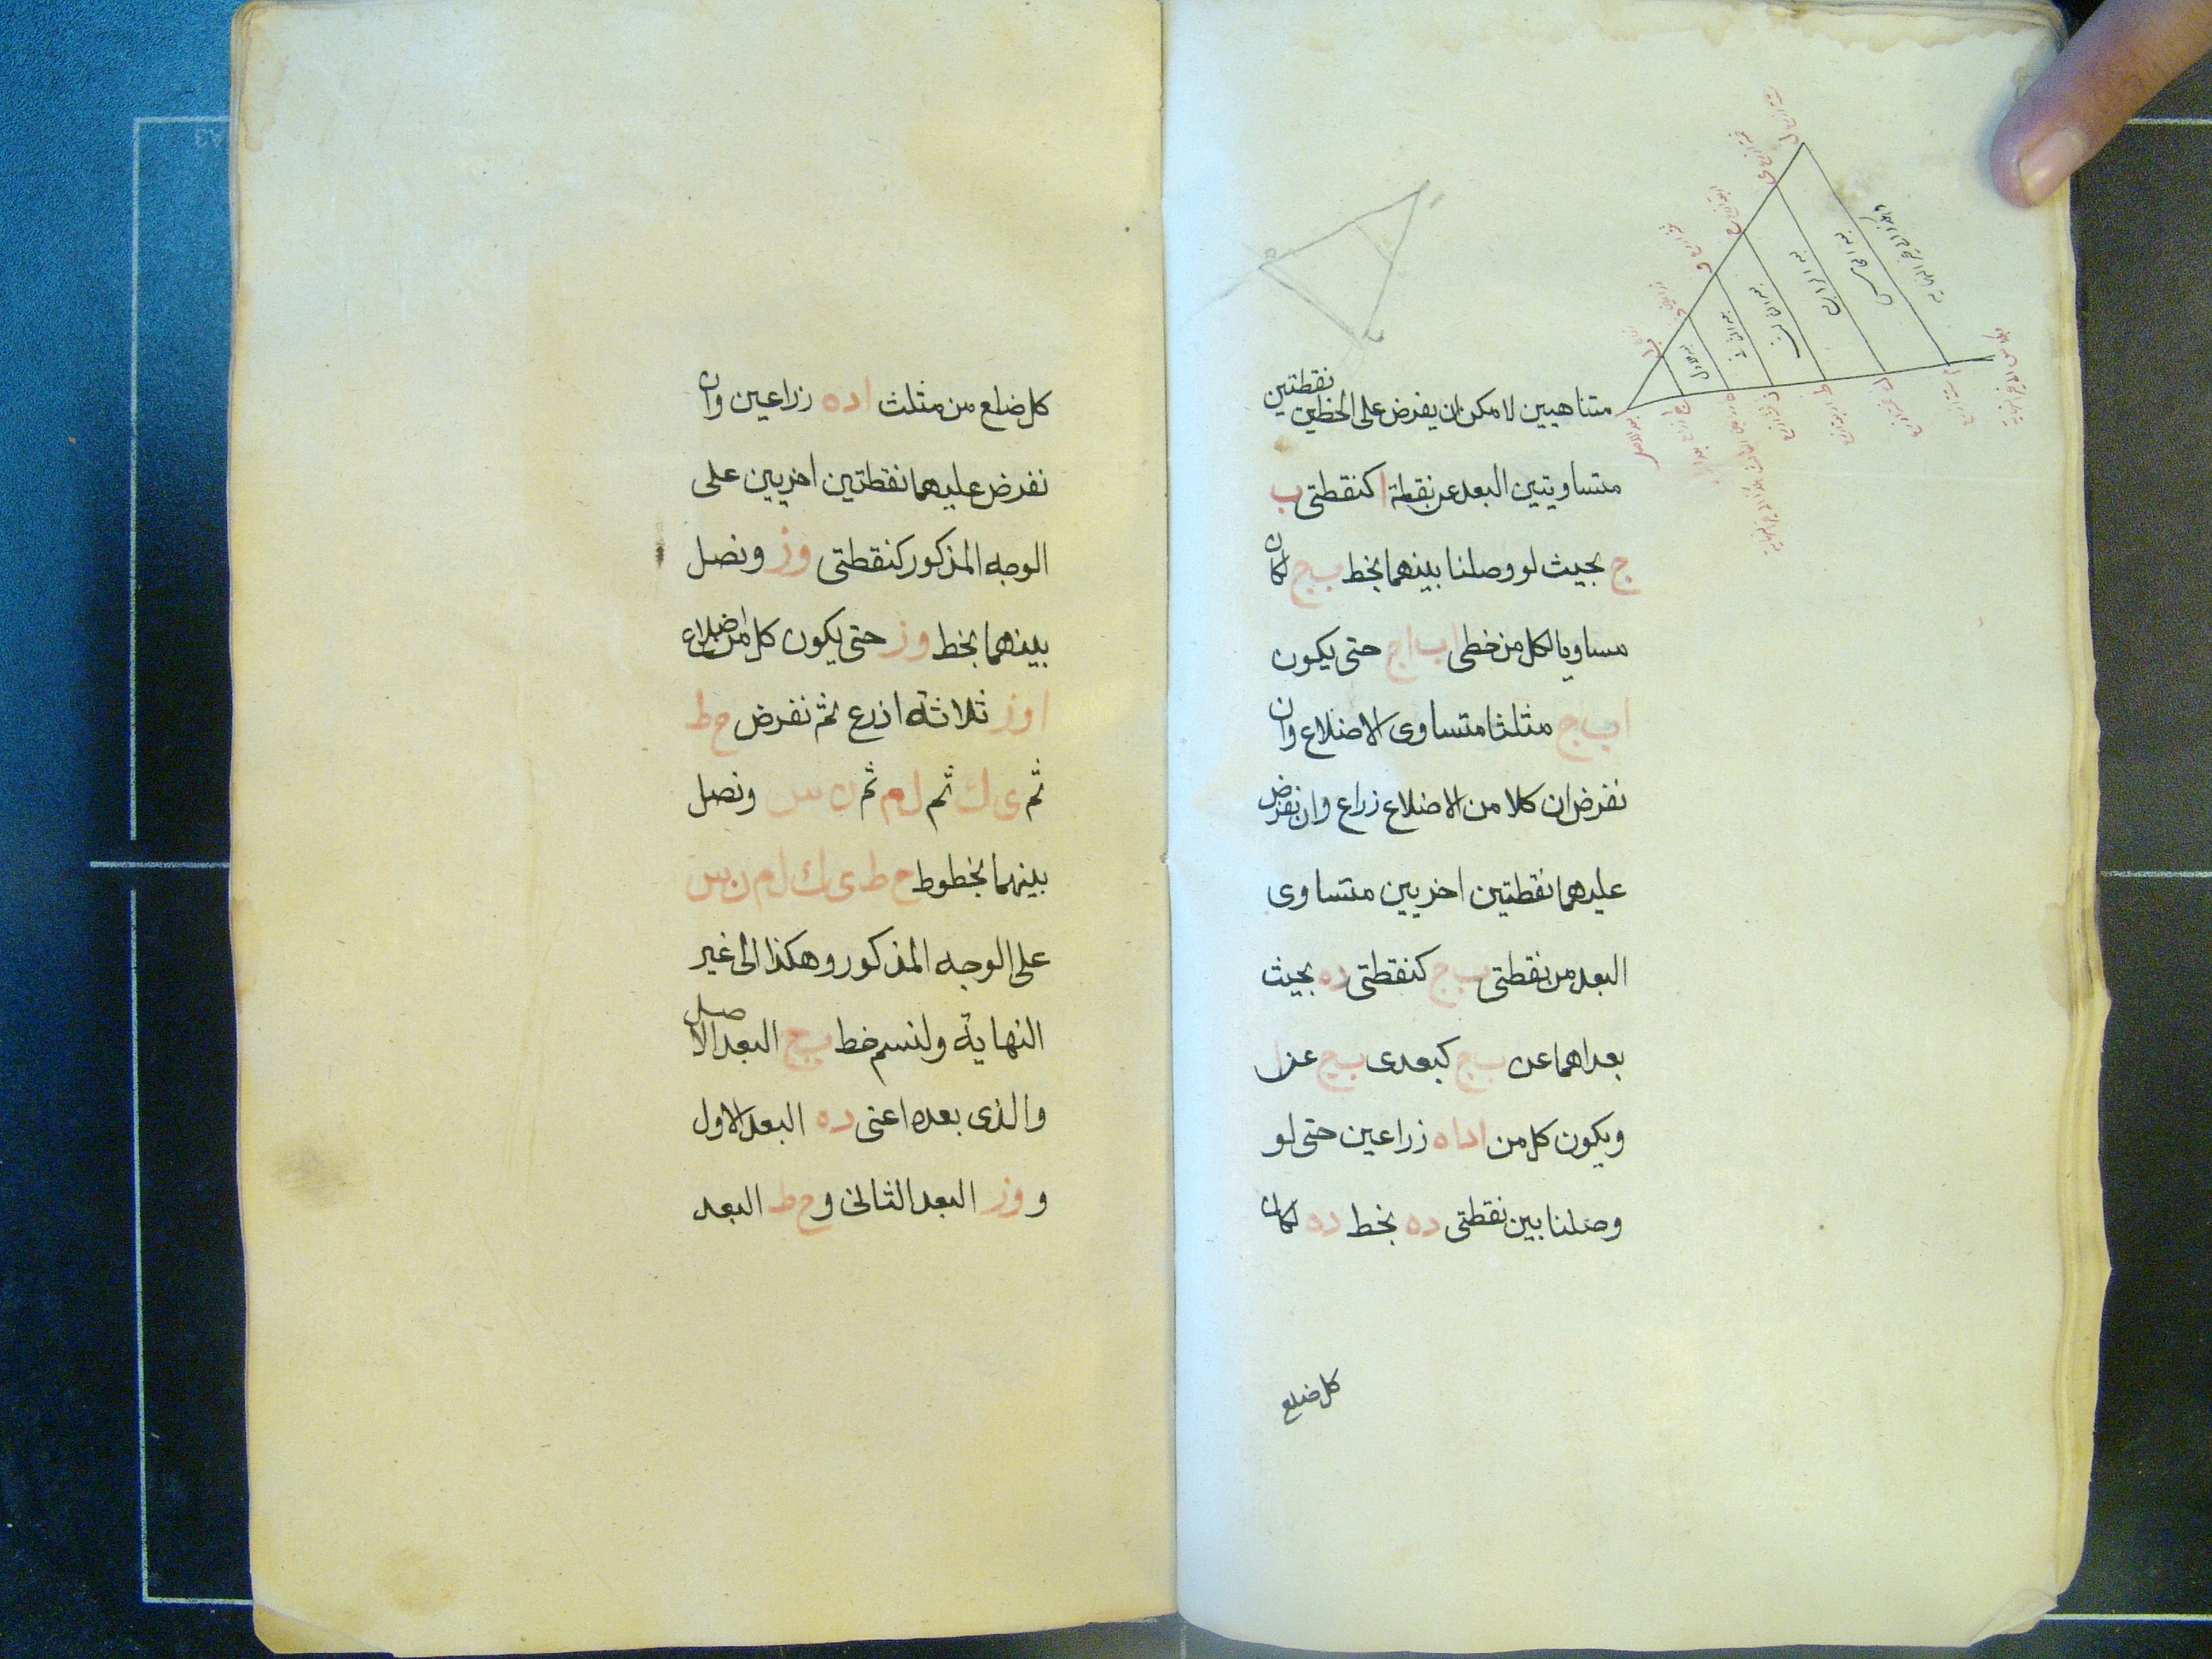 متناهيين لامكن ان يفرض على الخطين نقطتين
متساويتين البعد عن نقطة ا كنقطتى ب
ج بحيث لو وصلنا بينهما بخط ب ج لكان
مساويا لكل من خطى اب اج حتى يكون
اب ج مثلثا متساوى الاضلاع وان
نفرض ان كلا من الاضلاع زراع وان نفرض
عليهما نقطتين اخريين متساوى
البعد من نقطتى ب ج كنقطتى ده بحيث
بعداهما عن ب ج كبعدى ب ج عن ا
ويكون كل من اد اه زراعين حتى لو
وصلنا بين نقطتى ده بخط ده لكان
كل ضلع
كل ضلع من مثلث اده زراعين وان
نفرض عليهما نقطتين اخريين على
الوجه المذكور كنقطتى وز ونصل
بينهما بخط وز حتى يكون كل من اضلاع
اوز ثلاثة اذرع ثم نفرض ح ط
ثم ى ك ثم ل م ثم ن س ونصل
بينهما بخطوط ح ط ى ك ل م ن س
على الوجه المذكور وهكذا الى غير
النهاية ولنسم خط ب ج البعد الاصل
والذى بعده اعنى ده البعد الاول
و وز البعد الثانى و ح ط البعد